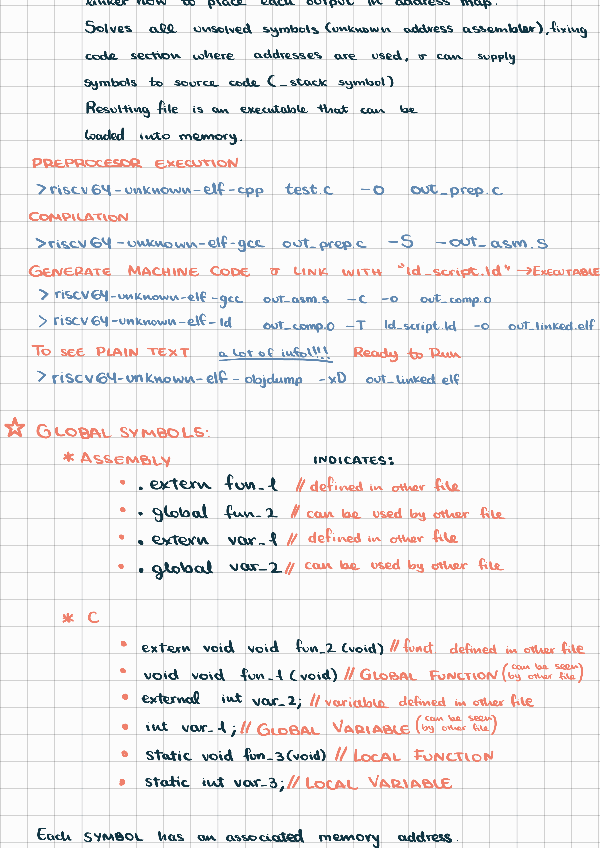 linker how to place each output in address map.
Solves all unsolved symbols (unknown address assembler), fixing
code section where addresses are used, & can supply
symbols to source code (_stack symbol)
Resulting file is an executable that can be
loaded into memory.
PREPROCESOR EXECUTION
>riscv64-unknown-elf-cpp test.c -o out_prep.c
COMPILATION
>riscv64-unknown-elf-gcc out_prep.c -S -out_asm.S
GENERATE MACHINE CODE & LINK WITH "ld_script.ld" →EXECUTABLE
>riscv64-unknown-elf-gcc out_asm.s -c -o out_comp.o
>riscv64-unknown-elf-ld out_comp.o -T ld_script.ld -o out_linked.elf
TO SEE PLAIN TEXT a lot of info!!! Ready to Run
>riscv64-unknown-elf-objdump -xD out_linked elf
☆ GLOBAL SYMBOLS:
* ASSEMBLY INDICATES:
• .extern fun_1 // defined in other file
• .global fun_2 // can be used by other file
• .extern var_1 // defined in other file
• .global var_2 // can be used by other file
* C
• extern void void fun_2 (void) // funct defined in other file
• void void fun_1 (void) // GLOBAL FUNCTION (can be seen by other file)
• external int var_2; // variable defined in other file
• int var_1; // GLOBAL VARIABLE (can be seen by other file)
• static void fun_3(void) // LOCAL FUNCTION
• static int var_3; // LOCAL VARIABLE
Each SYMBOL has an associated memory address.